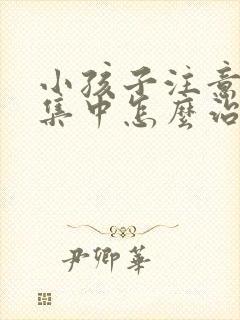 小孩子注意
集中怎麼治
尹卿華